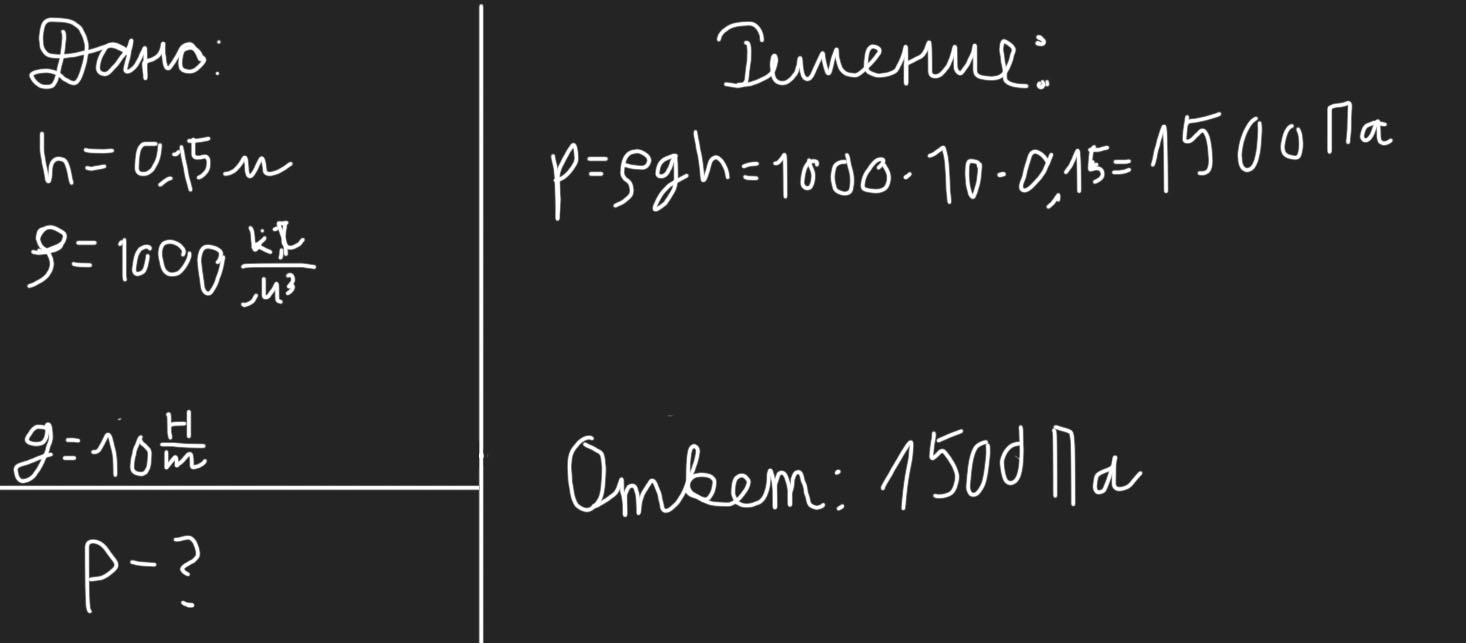 Дано:
h = 0,15 м
ρ = 1000 кг/м³
g = 10 Н/m
p - ?
Решение:
p = ρgh = 1000 · 10 · 0,15 = 1500 Па
Ответ: 1500 Па